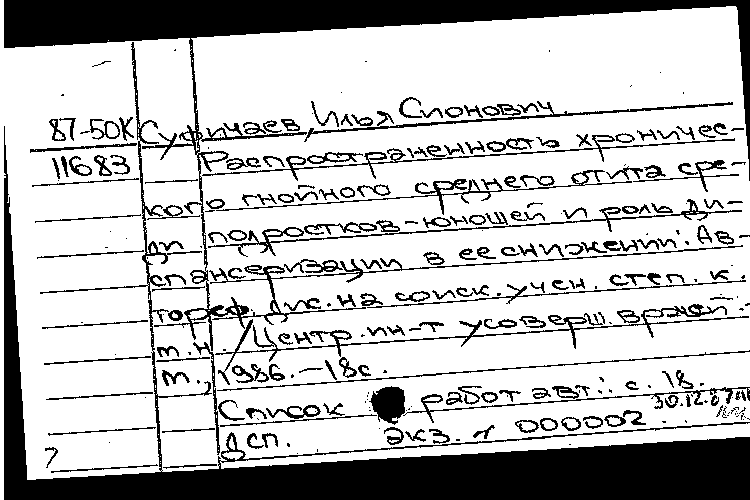 87-50К Суфичаев, Илья Сионович.
11683 Распространенность хроничес-
кого гнойного среднего отита сре-
ди подростков-юношей и роль ди-
спансеризации в ее снижении: Ав-
тореф. дис. на соиск. учен. степ. к.
м.н. / Центр. ин-т усоверш. врачей.-
М., 1986.-18с.
Список работ авт.: с. 18.
30.12.87
ДСП. Экз. 000002
7